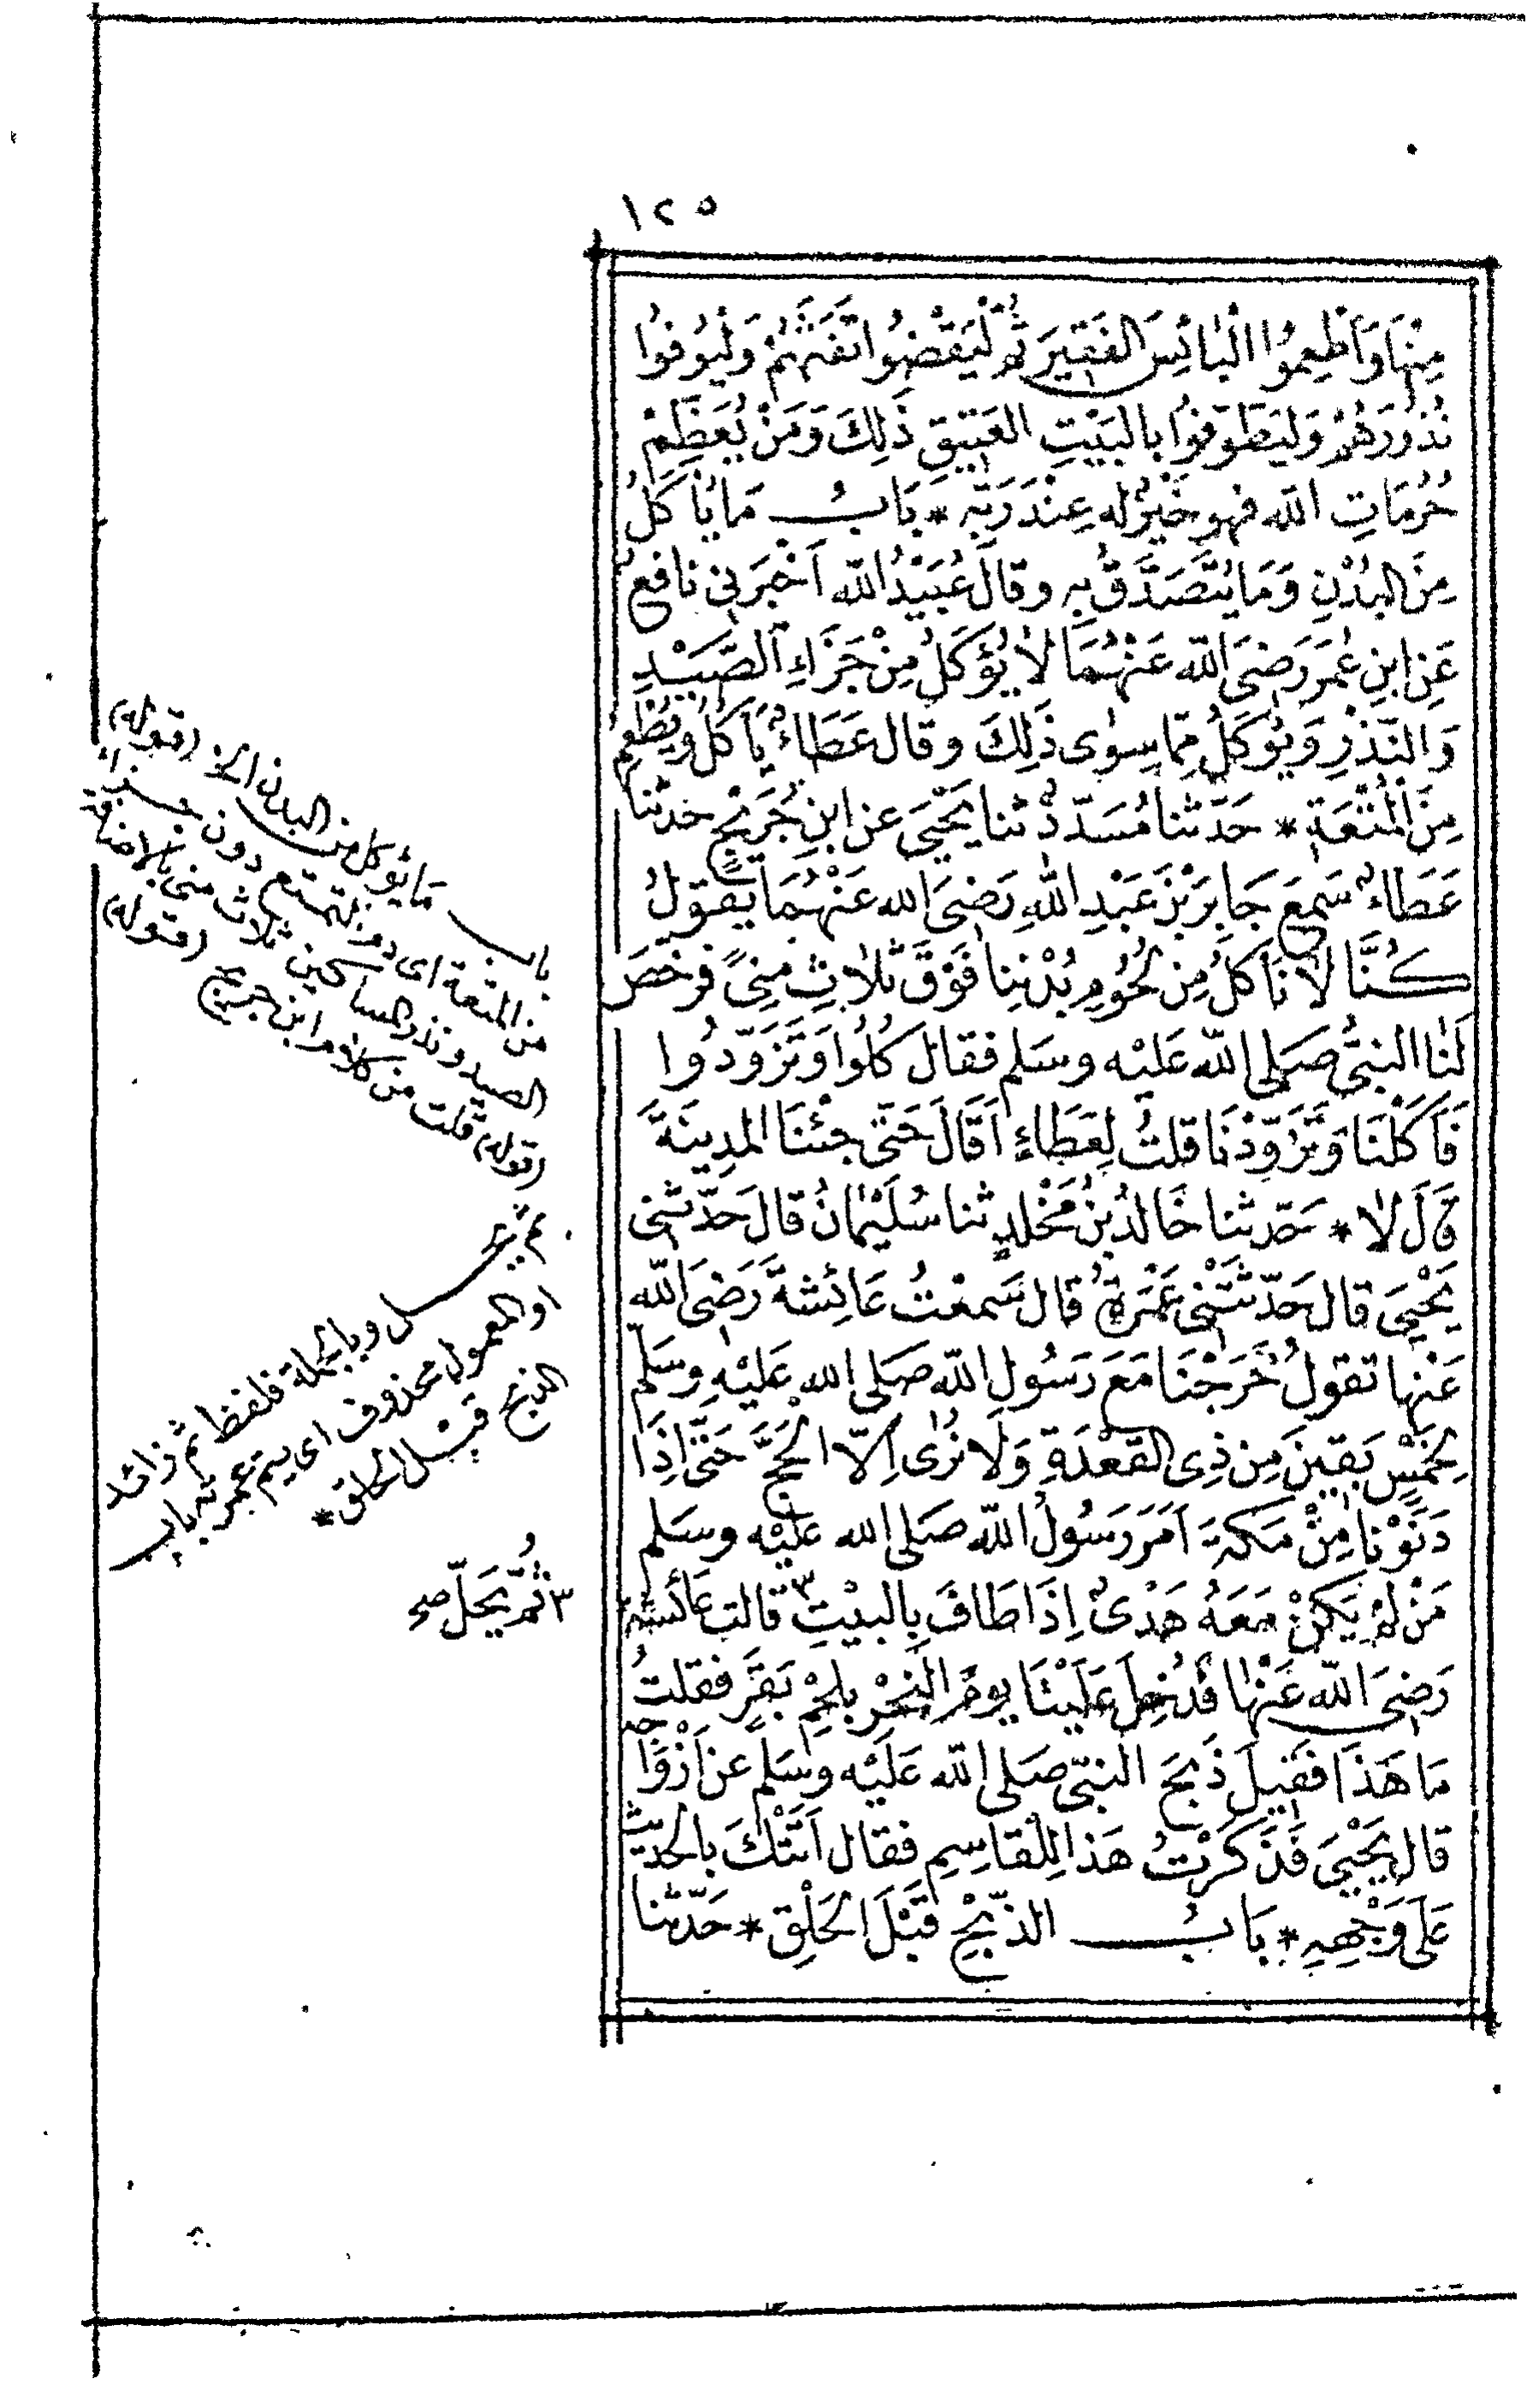 ١٢٥
مِنْهَا وَأَطْعِمُوا الْبَائِسَ الفَقِيرَ ثُمَّ لْيَقْضُوا تَفَثَهُمْ وَلْيُوفُوا
نُذُورَهُمْ وَلْيَطَّوَّفُوا بِالبَيْتِ العَتِيقِ ذَلِكَ وَمَنْ يُعَظِّمْ
حُرُمَاتِ الله فهو خَيْرٌ له عِنْدَ رَبِّهِ * بَابُ مَا يَأْكُلُ
مِنَ البُدْنِ وَمَا يُتَصَدَّقُ بِهِ وقالَ عُبَيْدُ الله أَخْبَرَنِى نافعٌ
عَنِ ابنِ عُمَرَ رَضِىَ الله عَنْهُمَا لاَ يُؤكَلُ مِنْ جَزَاءِ الصَّيْدِ
وَالنَّذْرِ وَيُؤكَلُ مِمَّا سِوٰى ذَلِكَ وقال عَطَاءٌ يَأْكُلُ ويُطْعِمُ
مِنَ الْمُتْعَةِ * حَدّثنا مُسَدّدٌ ثنا يَحْيَى عن ابنِ جُرَيْجٍ حدثنا
عَطَاءٌ سَمِعَ جَابِرَ بْنَ عَبْدِ اللهِ رَضِىَ الله عَنْهُمَا يَقولُ
كُنَّا لاَ نَأكُلُ مِن لُحُومِ بُدْنِنا فَوْقَ ثَلاَثِ مِنًى فرخصَ
لَنَا النبىُّ صَلى الله عَلَيْه وسَلم فقال كُلُوا وَتَزَوَّدُوا
فَأَكَلْنَا وَتَزَوَّدْنَا قلتُ لِعَطَاءٍ أَقَالَ حَتّى جِئْنَا المدِينَةَ
قَالَ لاَ * حَدّثنا خَالدُ بنُ مَخْلدٍ ثنا سُلَيْمانُ قال حَدّثنى
يَحْيَى قال حَدّثَتْنِى عَمْرَةُ قال سَمِعْتُ عَائِشَةَ رَضِىَ الله
عَنْها تَقولُ خَرَجْنَا مَعَ رَسُولِ الله صَلى الله عَلَيْهِ وسَلّم
لِخَمْسٍ بَقِينَ مِن ذِى القَعْدَةِ وَلاَ نُرٰى اِلاّ الحَجَّ حَتّى اِذَا
دَنَوْنا مِنْ مَكةَ اَمَرَ رَسُولُ الله صَلى الله عَليْه وسَلم
مَنْ لمْ يَكنْ مَعَهُ هَدْىٌ اِذَا طَافَ بِالبيْتِ ٣ قالت عَائشةُ
رَضِىَ الله عَنْها فَدُخِلَ عَلَيْنَا يومَ النحْرِ بلحْمِ بَقَرٍ فقلتُ
مَا هَذَا فَقِيلَ ذَبَحَ النبىّ صَلى الله عَلَيْه وسَلم عن أَزْوَاجِهِ
قال يَحْيَى فَذَكَرْتُ هَذا لِلْقاسِمِ فقال أَتَتْكَ بالحَدِيثِ
عَلَى وَجْهِهِ * بَابُ الذّبْحِ قَبْلَ الحَلْقِ * حَدّثنا
(قوله)
باب مَا يؤكل من البدن الخ
من المتعة اى دم التمتع دون جزاء
الصيد ونذر المساكين ثلاث منى بالاضافة
(قوله) قلت من كلام ابن جريج (قوله)
ثم يحل وبالجملة فلفظ ثم زائد
او المعمول محذوف اى يتم عمرته باب
الذبح قبل الحلق *
٣ ثُمَّ يَحَلّ صح